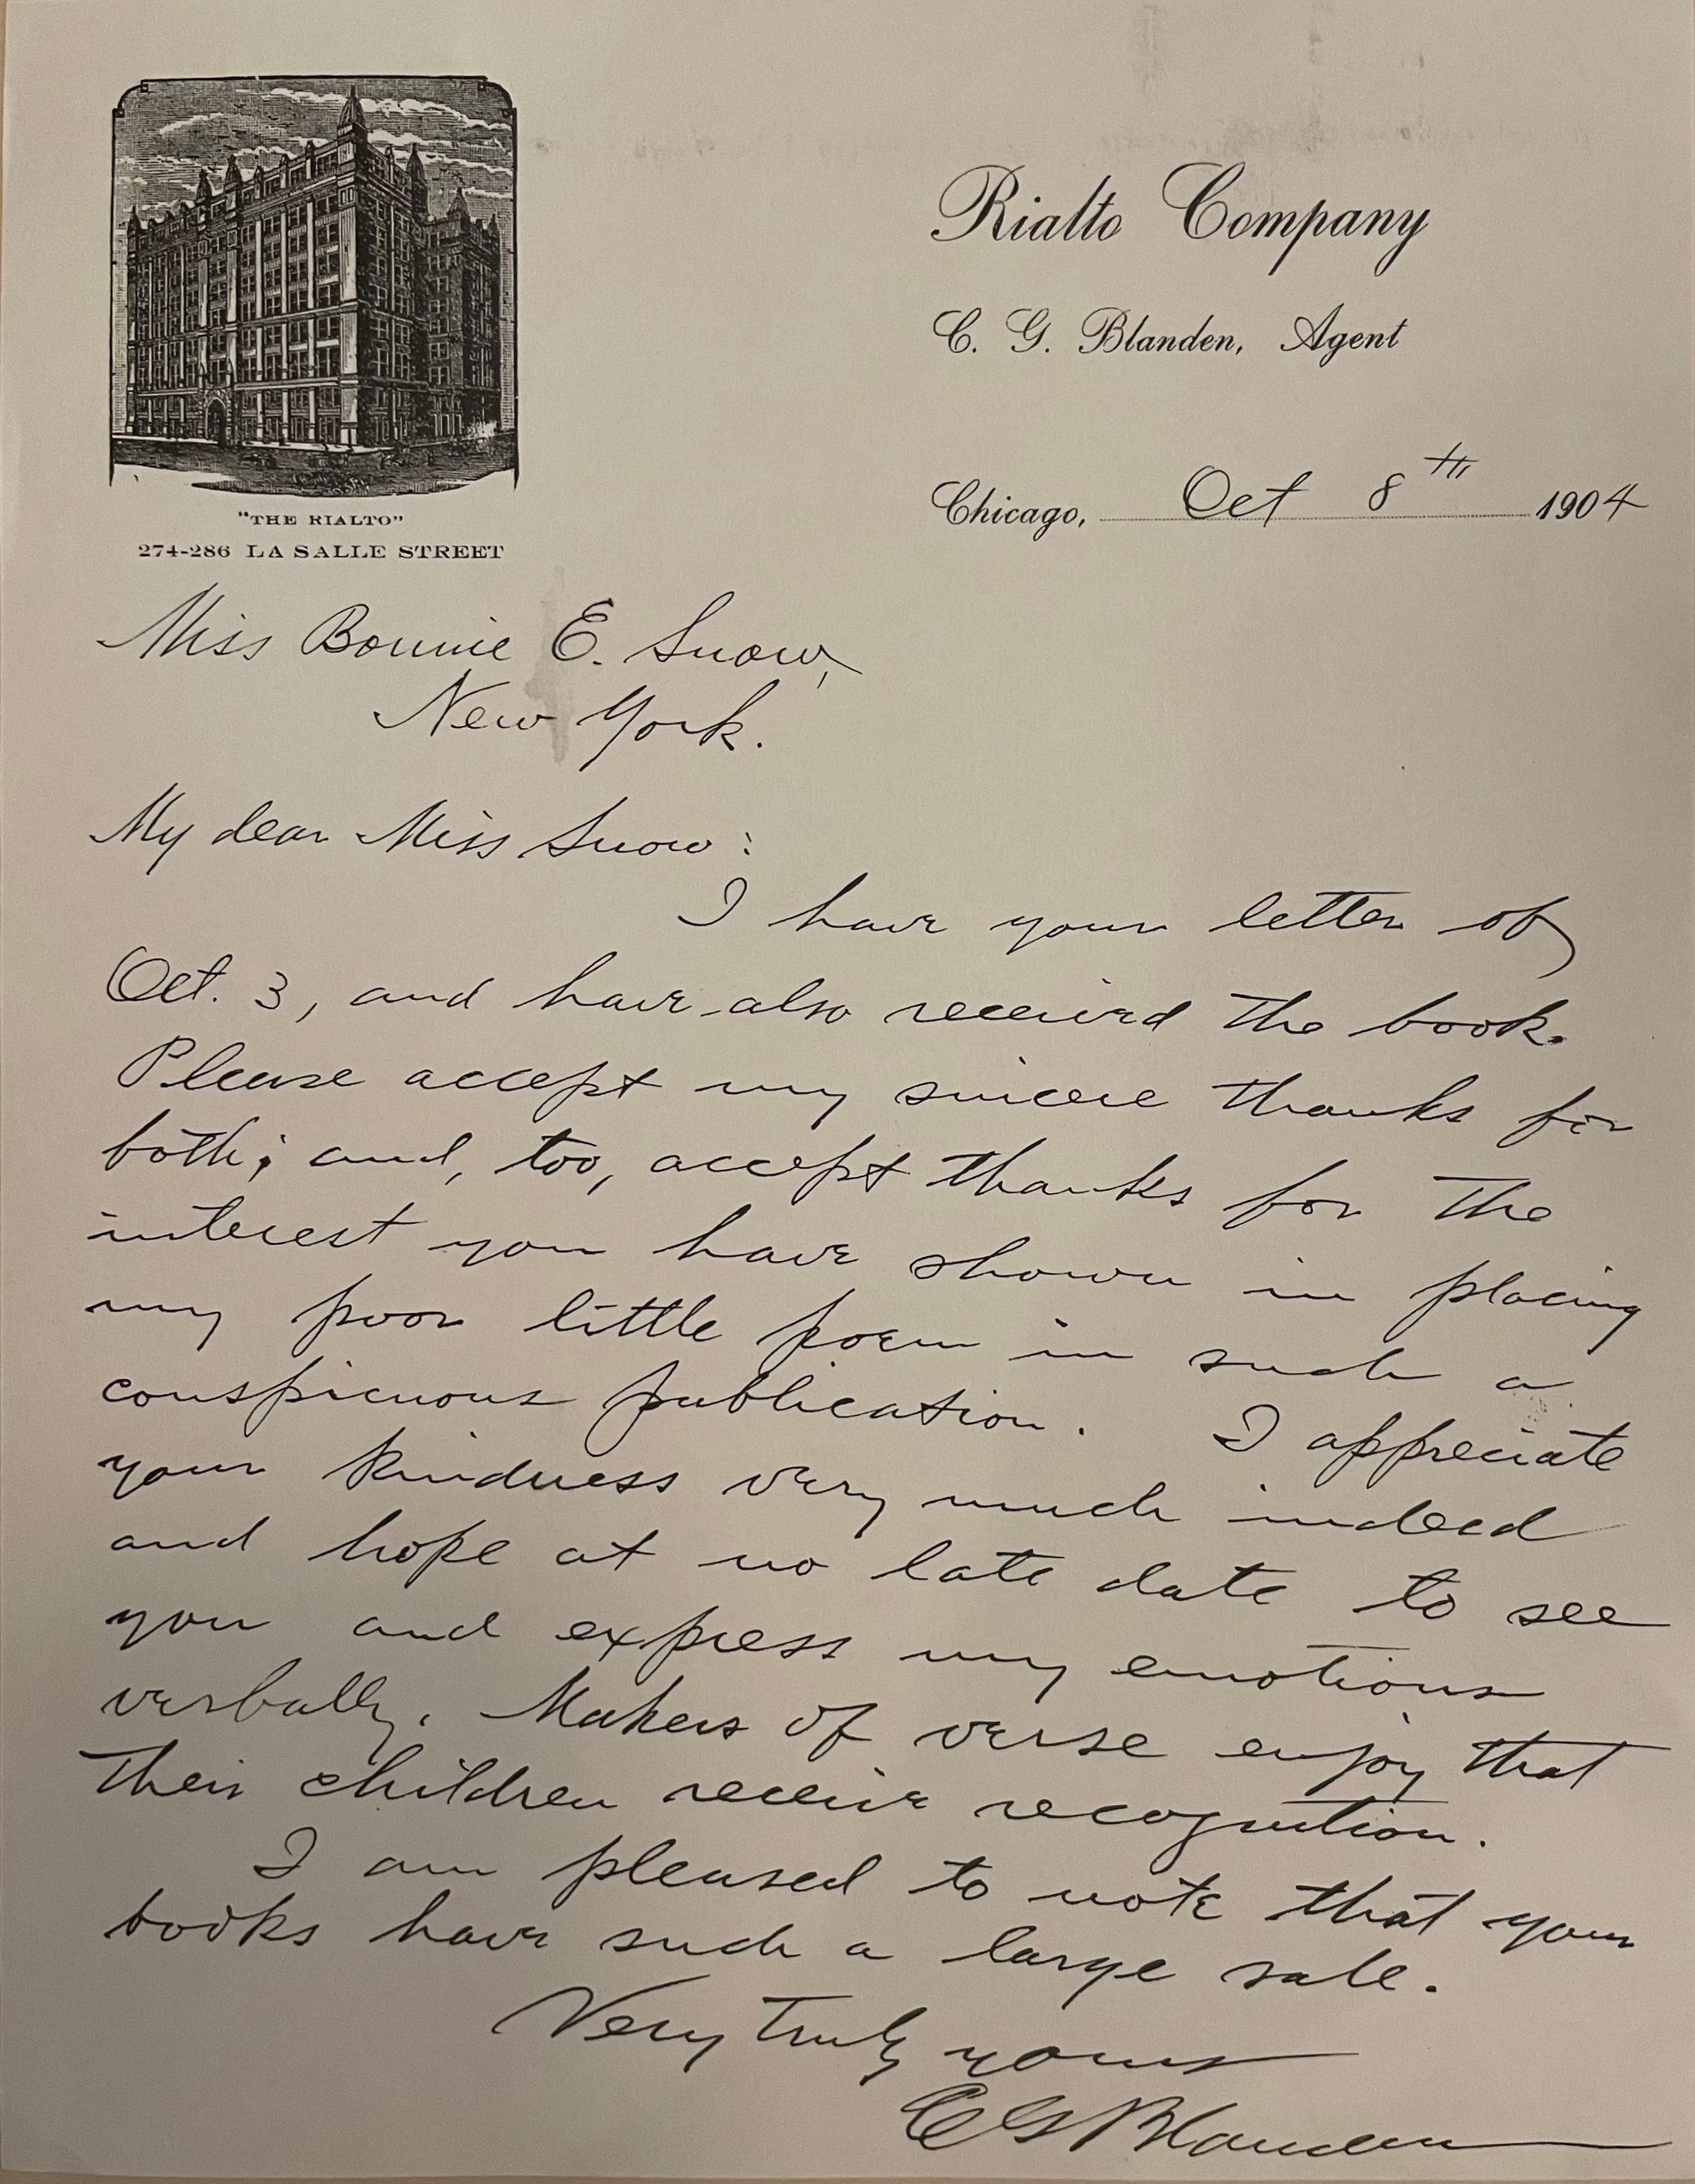 "THE RIALTO"
274-286 LA SALLE STREET
Rialto Company
C. G. Blanden, Agent
Chicago, Oct 8th 1904
Miss Bonnie E. Snow,
New York.
My dear Miss Snow:
I have your letter of
Oct. 3, and have also received the book.
Please accept my sincere thanks for
both; and, too, accept thanks for the
interest you have shown in placing
my poor little poem in such a
conspicuous publication. I appreciate
your kindness very much indeed
and hope at no late date to see
you and express my emotions
verbally. Makers of verse enjoy that
their children receive recognition.
I am pleased to note that your
books have such a large sale.
Very truly yours
C G Blanden